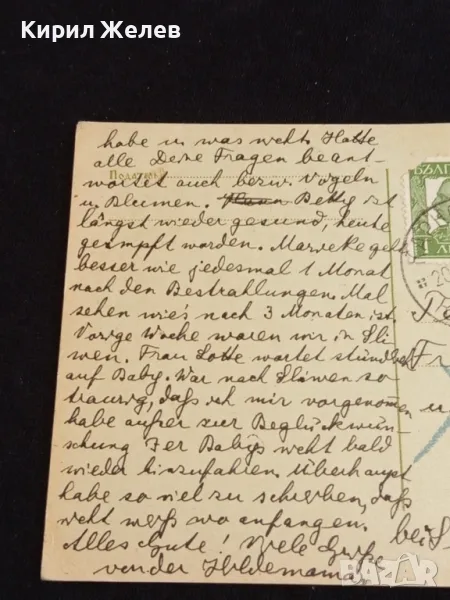 Кирил Желев
habe u. was nicht. Hatte
alle Deine Fragen beant-
Податель
wortet auch bezw. Vögeln
БЪЛГ
u. Blumen. Betty ist
längst wieder gesund, heute
geimpft worden. Marieke geht's
besser wie jedesmal 1 Monat
1
20
nach den Bestrahlungen. Mal
sehen wie's nach 3 Monaten ist.
Vorige Woche waren wir in Sli-
wen. Frau Lotte wartet stündlich
Fr
auf Baby. War nach Sliwen so
traurig, daß ich mir vorgenommen
habe außer zur Beglückwün-
schung des Babys nicht bald
wieder hinzufahren. Überhaupt
habe so viel zu schreiben, daß
nicht weiß wo anfangen.
bei
Alles Gute! Viele Grüße
von der Hildemama
BAZAR